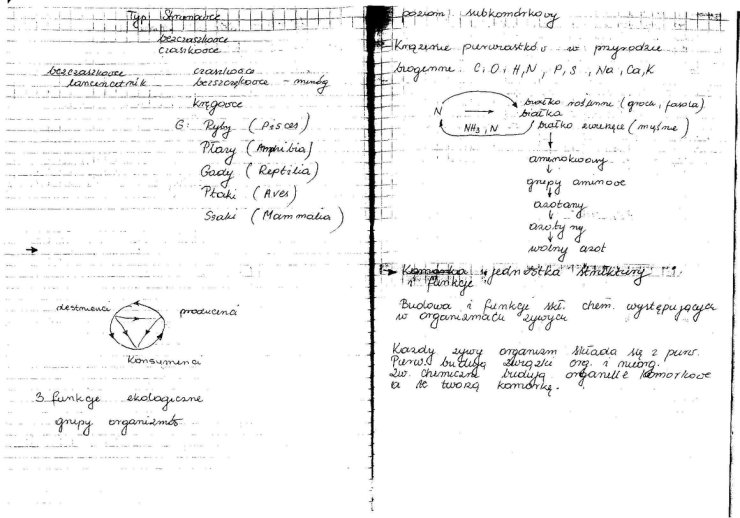 Typ Strunowce
bezczaszkowce
czaszkowce
bezczaszkowce czaszkowce
lancencetnik bezszczękowce - minóg
kręgowce
G: Ryby (Pisces)
Płazy (Amphibia)
Gady (Reptilia)
Ptaki (Aves)
Ssaki (Mammalia)
destruenci producenci
Konsumenci
3. funkcje ekologiczne
grupy organizmów
poziom subkomórkowy
Krążenie pierwiastków w przyrodzie
biogenne C, O, H, N, P, S, Na, Ca, K
białko roślinne (groch, fasola)
N białka
NH3, N białko zwierzęce (mięśnie)
aminokwasy
grupy aminowe
azotany
azotyny
wolny azot
Komórka jednostka struktury
i funkcje
Budowa i funkcje skł. chem. występujących
w organizmach żywych
Każdy żywy organizm składa się z pierw.
Pierw. budują związki org. i nieorg.
Zw. chemiczne budują organelle komórkowe
a te tworzą komórkę.